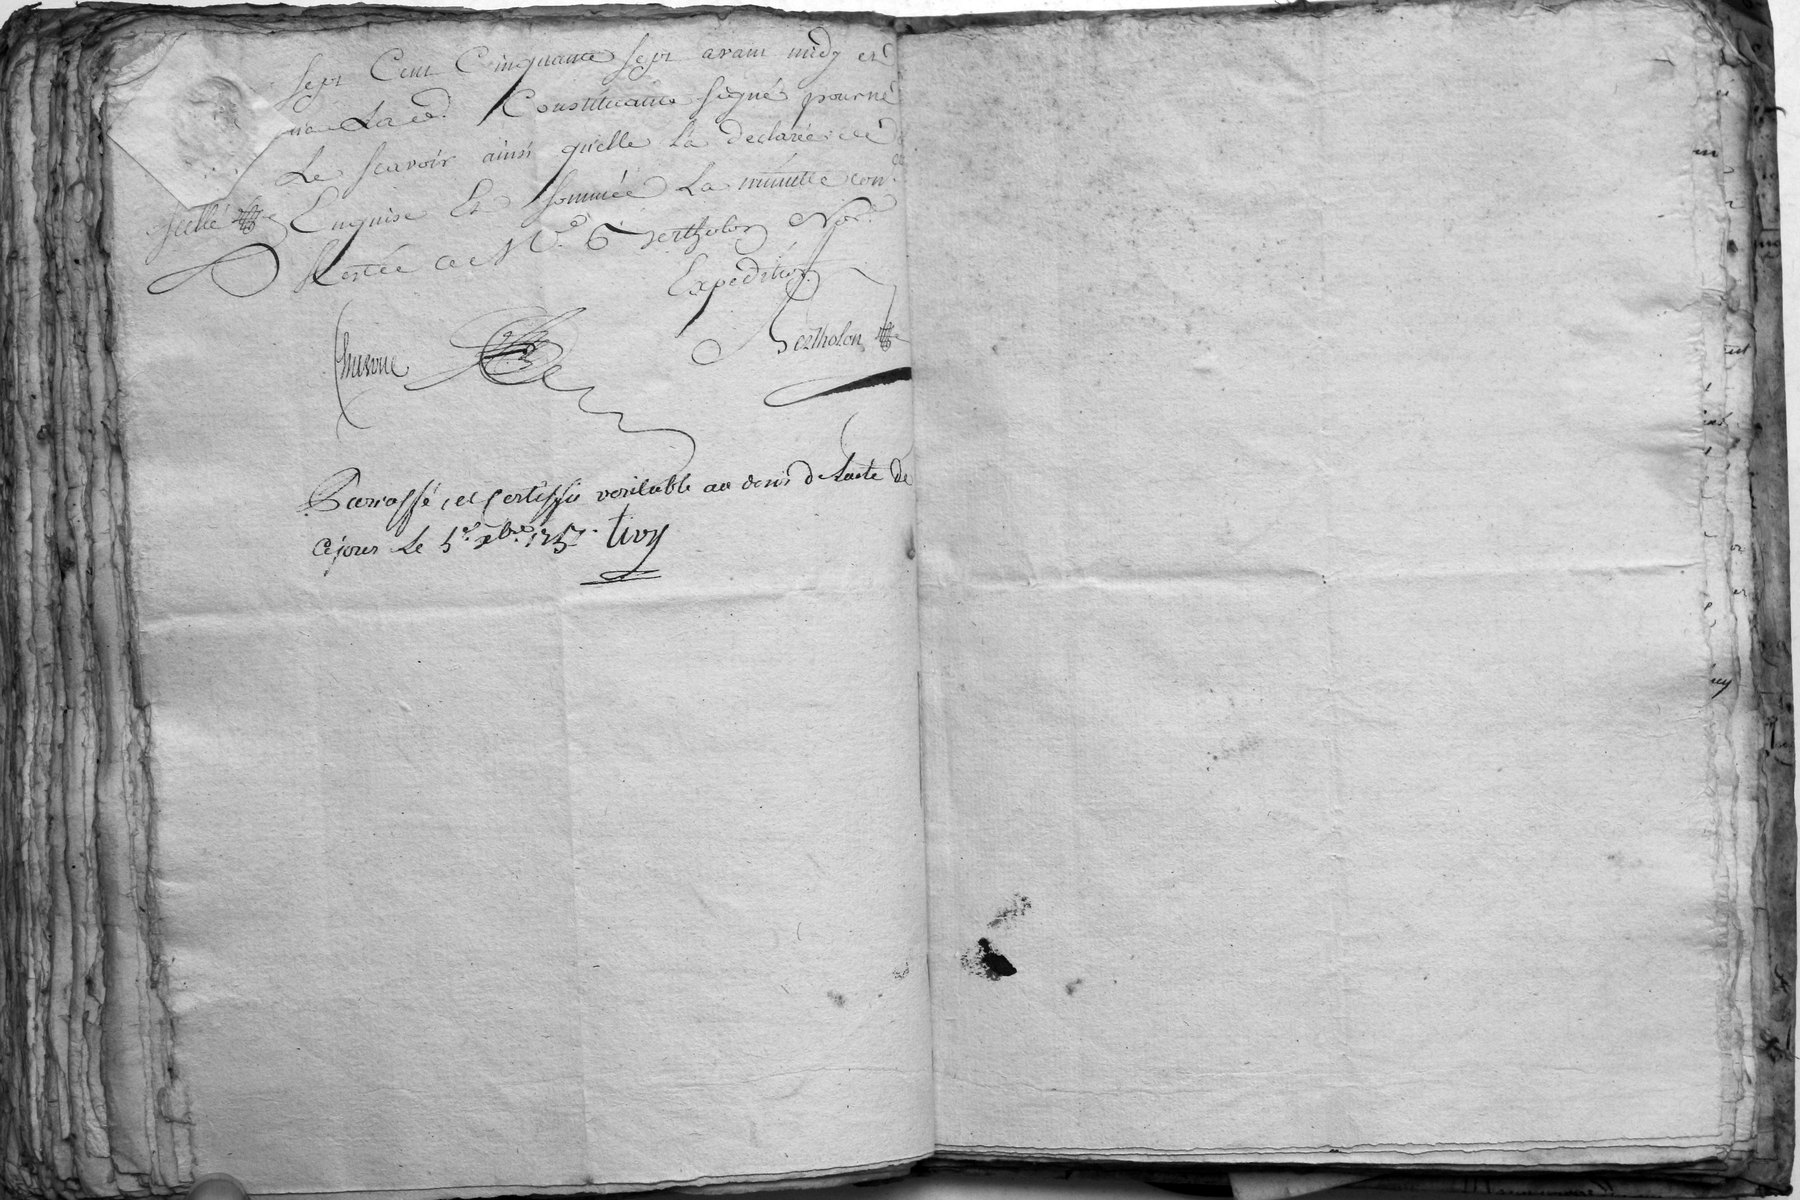 sept Cent Cinquante sept avant midy et
na Lad. Constituante signé pour ne
Le scavoir ainsi qu'elle La declaré de ce
Enquise Et sommée La minutte con
scellé
Restée a Me Bertholon Nore
Expedition
Bertholon
Parraffé, et Certiffié veritable au desir de l'acte de
ce jour Le 5e xbre 1757. tivy